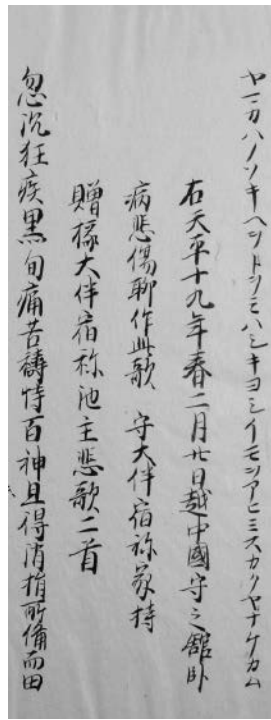 ヤマカハノソキヘヲトヲミハシキヨシイモヲアヒミスカクヤナケカム
右天平十九年春二月廿日越中國守之舘臥
病悲傷聊作此歌　守大伴宿祢家持
贈掾大伴宿祢池主悲歌二首
忽沉狂疾累旬痛苦禱恃百神且得消損所備而田